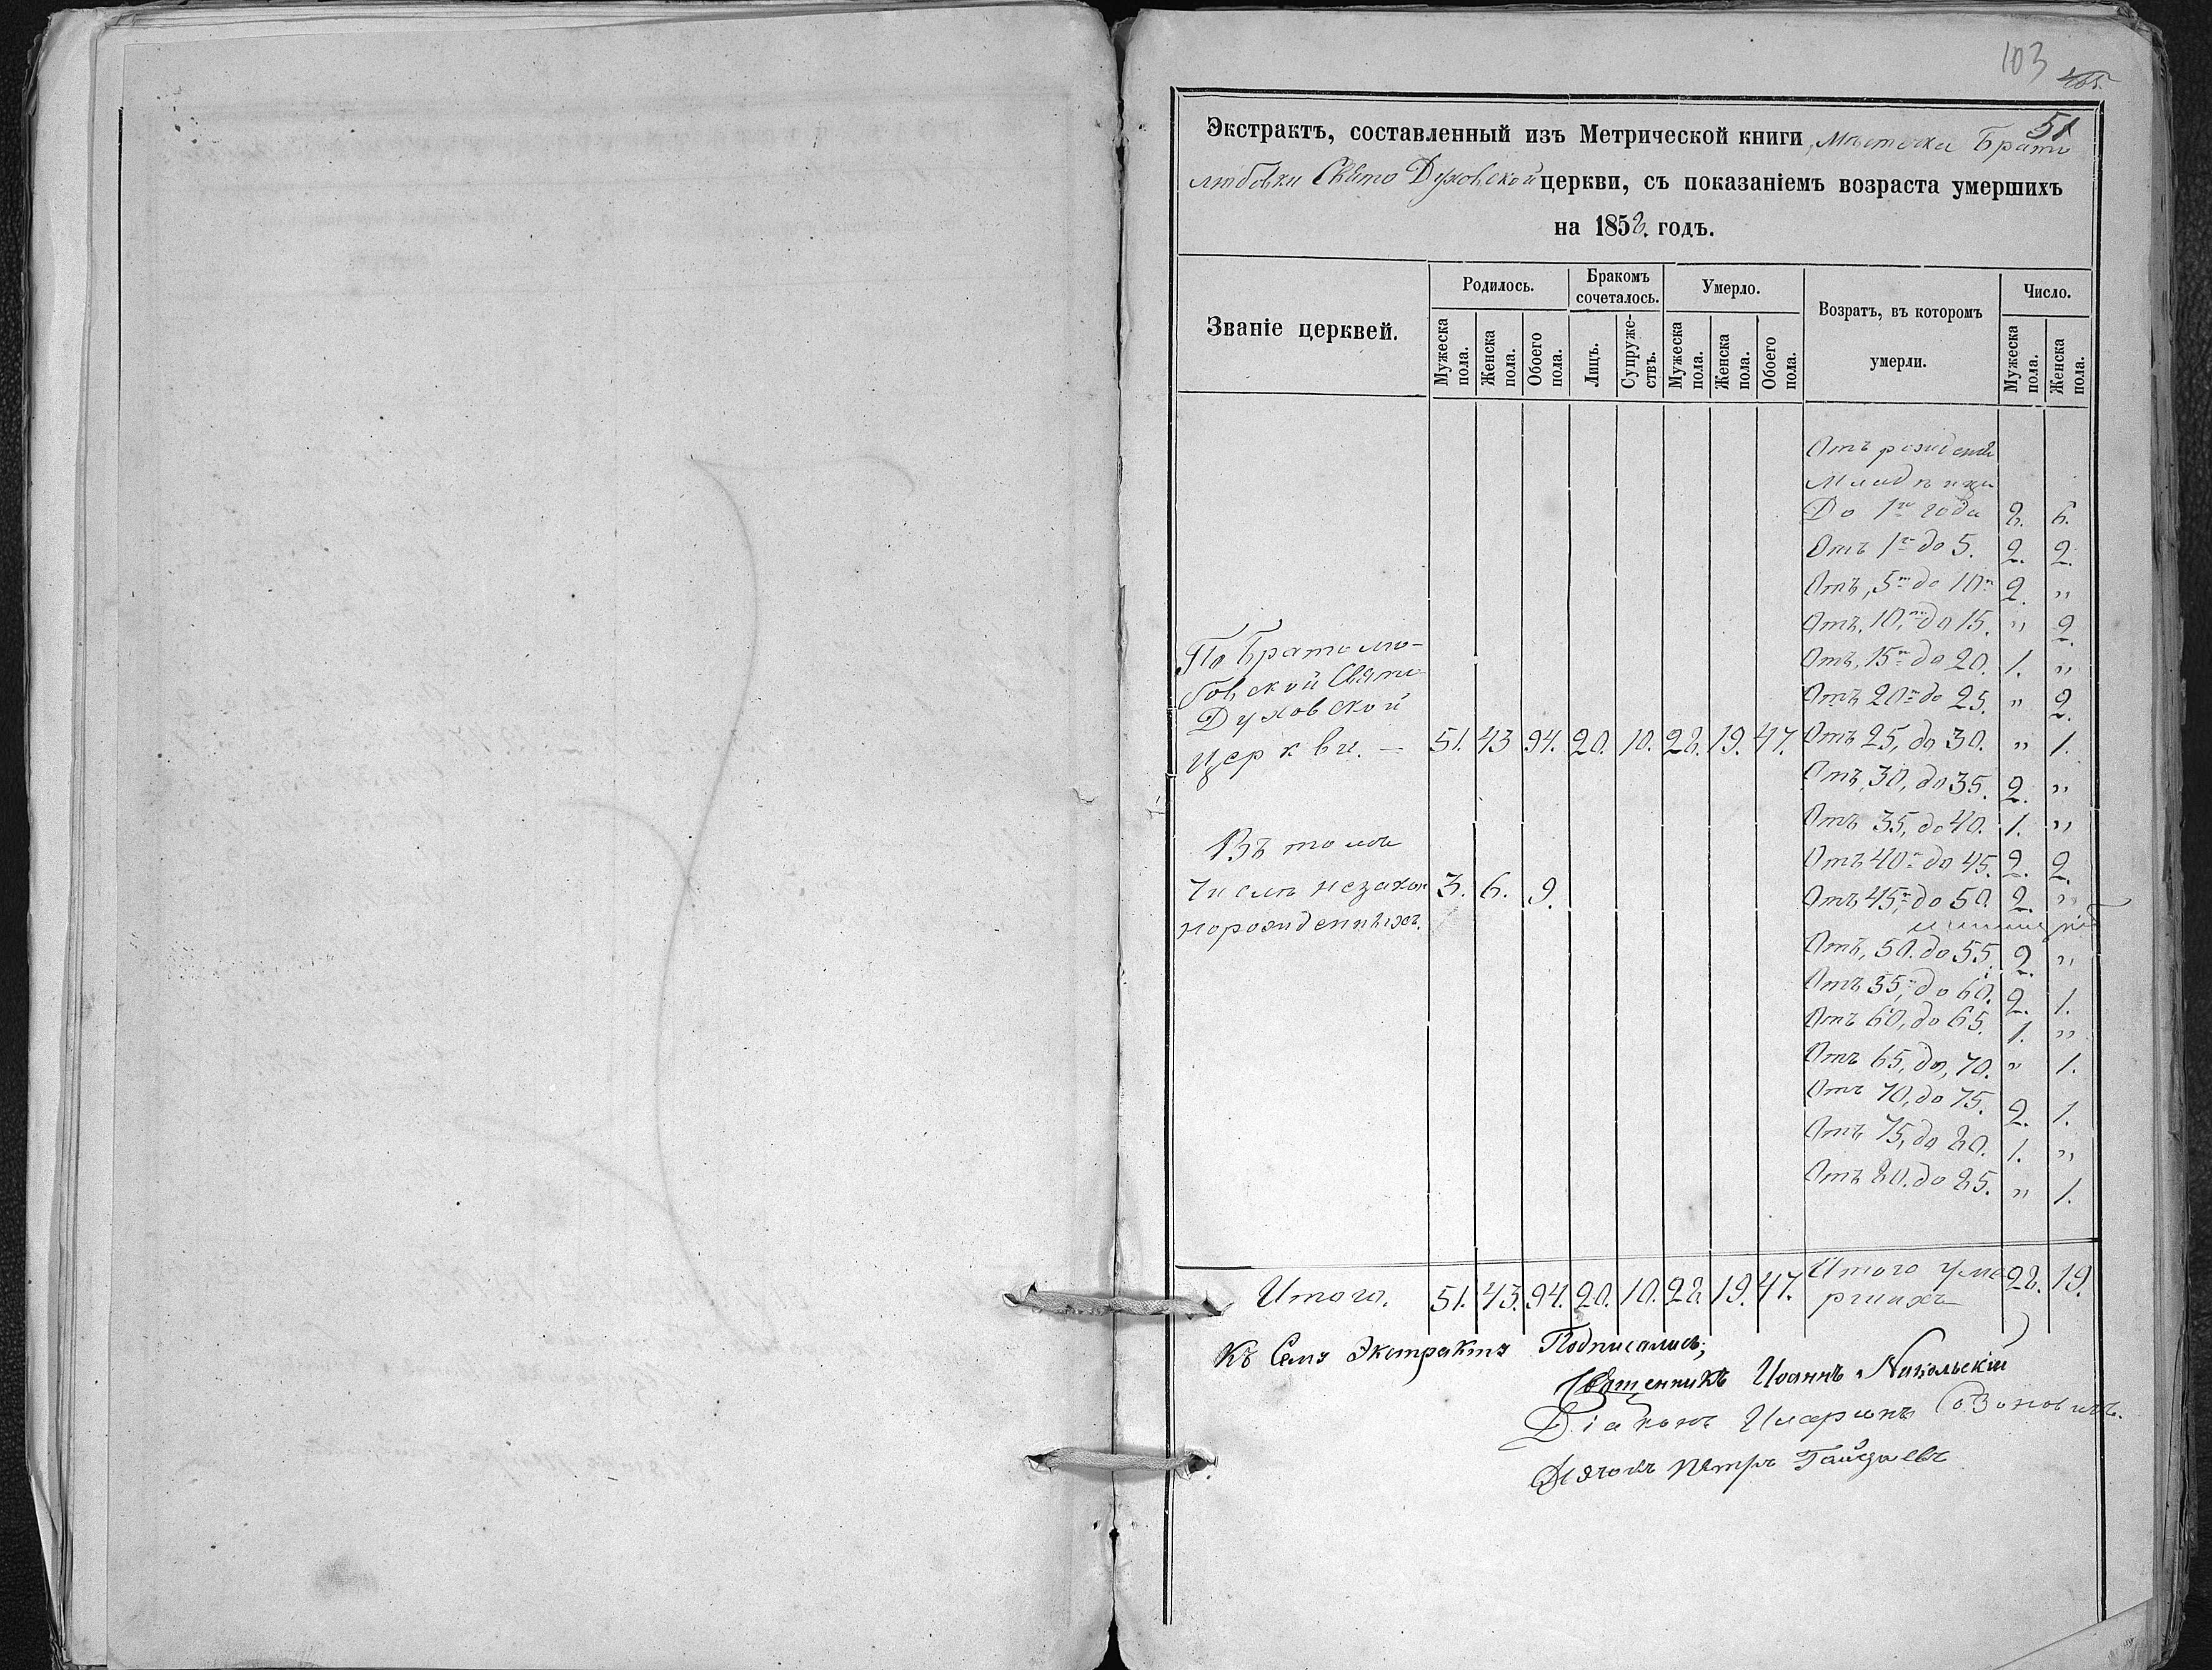 103
465
51
Экстрактъ, составленный изъ Метрической книги, Мѣстечка Брато
любовки Свято Духовской церкви, съ показаніемъ возраста умершихъ
на 1858. годъ.
Званіе церквей.
Родилось.
Бракомъ сочеталось.
Умерло.
Возратъ, въ которомъ умерли.
Число.
Мужеска пола.
Женска пола.
Обоего пола.
Лицъ.
Супруже-ствъ.
Мужеска пола.
Женска пола.
Обоего пола.
Мужеска пола.
Женска пола.
Отъ рожденія
Младенцы
До 1го года 8. 6.
Отъ 1го до 5. 2. 2.
Отъ, 5ти до 10ти 2. "
Отъ, 10,ти до 15. " 2.
Отъ, 15ти до 20. 1. "
Отъ 20ти до 25. " 2.
По Братолю-
бовской Свято
Духовской
Церкви. — 51. 43 94. 20. 10. 28. 19. 47. Отъ 25, до 30. " 1.
Отъ, 30, до 35. 2. "
Отъ 35, до 40. 1. "
Въ томъ
Отъ 40ти до 45. 2. 2.
Числѣ незакон 3. 6. 9.
норожденныхъ.
Отъ 45ти до 50. 2. "
Отъ, 50. до 55. 2. "
Отъ 55,ти до 60. 2. 1.
Отъ 60, до 65. 1. "
Отъ 65, до, 70. " 1.
Отъ 70, до 75. 2. 1.
Отъ, 75, до 80. 1. "
Отъ 80. до 85. " 1.
Итого. 51. 43. 94. 20. 10. 28. 19. 47. Итого уме 28. 19.
ршихъ
Къ Сему Экстракту Подписались;
Священникъ Иоаннъ Никольскій
Діаконъ Иларіонъ Созоновичъ.
Дьячокъ Петръ Гайдаевъ